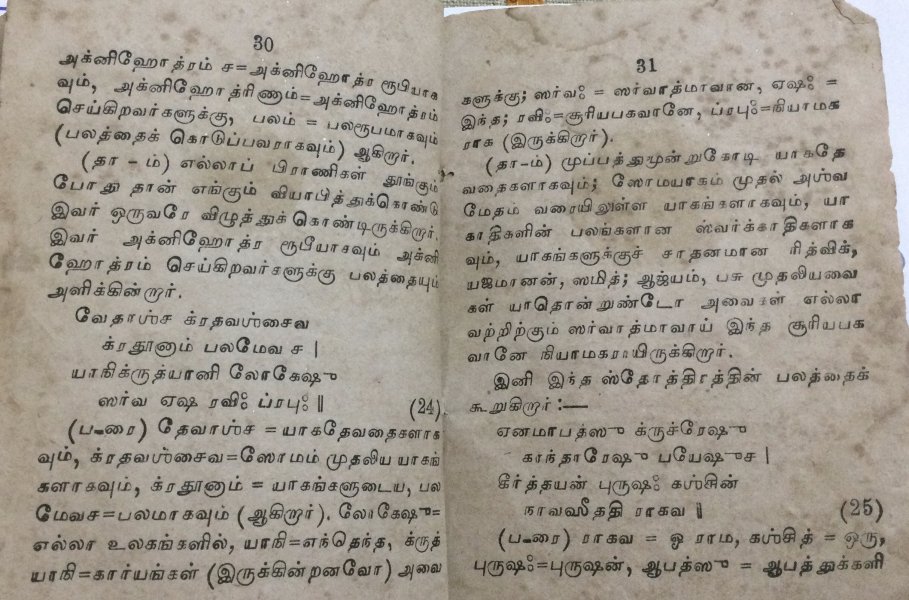 30
அக்னிஹோத்ரம் ச=அக்னிஹோத்ர ரூபியாக
வும், அக்னிஹோத்ரிணாம்=அக்னிஹோத்ரம்
செய்கிறவர்களுக்கு, பலம் = பலரூபமாகவும்
(பலத்தைக் கொடுப்பவராகவும்) ஆகிறார்.
(தா - ம்) எல்லாப் பிராணிகள் தூங்கும்
போது தான் எங்கும் வியாபித்துக்கொண்டு
இவர் ஒருவரே விழுத்துக்கொண்டிருக்கிறார்.
இவர் அக்னிஹோத்ர ரூபியாகவும் அக்னி
ஹோத்ரம் செய்கிறவர்களுக்கு பலத்தையும்
அளிக்கின்றார்.
வேதாஶ்ச க்ரதவஶ்சைவ
க்ரதூனாம் பலமேவ ச |
யாநிக்ருத்யானி லோகேஷு
ஸர்வ ஏஷ ரவிஃ ப்ரபுஃ ‖ (24)
(ப-ரை) தேவாஶ்ச = யாகதேவதைகளாக
வும், க்ரதவஶ்சைவ=ஸோமம் முதலிய யாகங்
களாகவும், க்ரதூனாம் = யாகங்களுடைய, பல
மேவச=பலமாகவும் (ஆகிறார்). லோகேஷு=
எல்லா உலகங்களில், யாநி=எந்தெந்த, க்ருத்
யாநி=கார்யங்கள் (இருக்கின்றனவோ) அவை
31
களுக்கு; ஸர்வஃ = ஸர்வாத்மாவான, ஏஷஃ =
இந்த; ரவிஃ=சூரியபகவானே, ப்ரபுஃ=நியாமக
ராக (இருக்கிறார்).
(தா-ம்) முப்பத்துமூன்றுகோடி யாகதே
வதைகளாகவும்; ஸோமயாகம் முதல் அஶ்வ
மேதம் வரையிலுள்ள யாகங்களாகவும், யா
காதிகளின் பலங்களான ஸ்வர்க்காதிகளாக
வும், யாகங்களுக்குச் சாதனமான ரித்விக்,
யஜமானன், ஸமித்; ஆஜ்யம், பசு முதலியவை
கள் யாதொன்றுண்டோ அவைகள் எல்லா
வற்றிற்கும் ஸர்வாத்மாவாய் இந்த சூரியபக
வானே நியாமகராயிருக்கிறார்.
இனி இந்த ஸ்தோத்திரத்தின் பலத்தைக்
கூறுகிறார்:—
ஏனமாபத்ஸு க்ருச்ரேஷு
காந்தாரேஷு பயேஷுச |
கீர்த்தயன் புருஷஃ கஶ்சின்
நாவஸீததி ராகவ ‖ (25)
(ப-ரை) ராகவ = ஓ ராம, கஶ்சித் = ஒரு,
புருஷஃ=புருஷன், ஆபத்ஸு = ஆபத்துக்களி